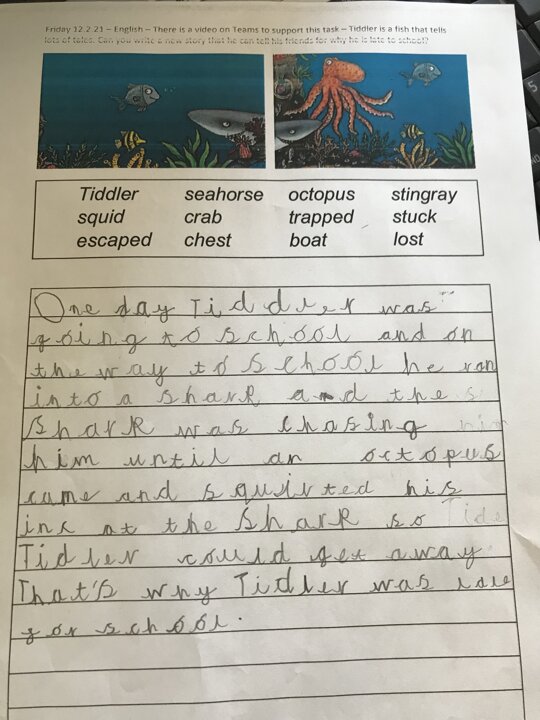 Friday 12.2.21 – English – There is a video on Teams to support this task – Tiddler is a fish that tells
lots of tales. Can you write a new story that he can tell his friends for why he is late to school?
Tiddler seahorse octopus stingray
squid crab trapped stuck
escaped chest boat lost
One day Tiddler was
going to school and on
the way to school he ran
into a shark and the s
shark was chasing him
him until an octopus
came and squirted his
inc at the shark so Tide
Tidler could get away
That's why Tidler was late
for school.